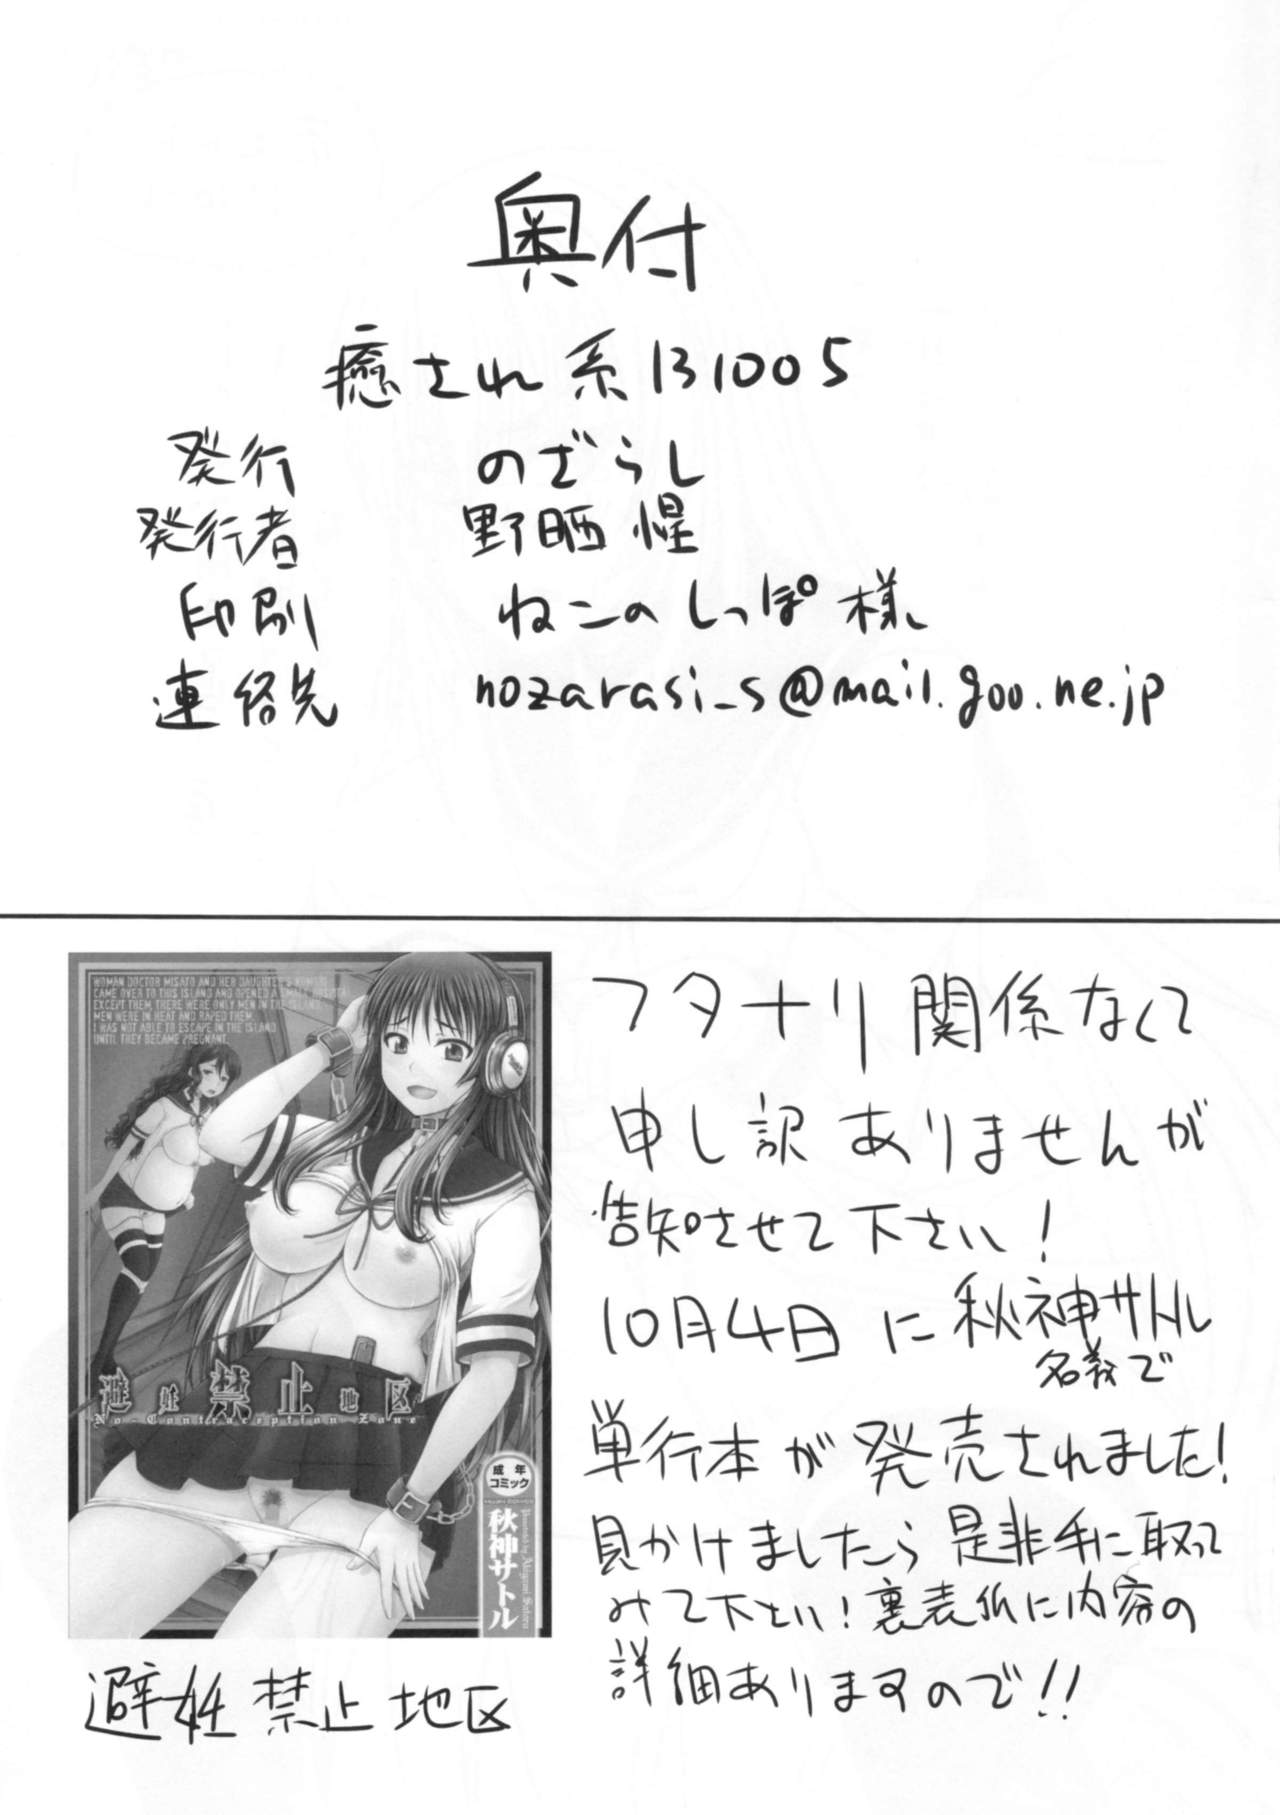 奥付
癒され系131005
発行 のざらし
発行者 野晒惺
印刷 ねこのしっぽ様
連絡先 nozarasi_s@mail.goo.ne.jp
WOMAN DOCTOR MISATO AND HER DAUGHTER'S
CAME OVER TO THIS ISLAND AND OPENED A SMALL
EXCEPT THEM, THERE WERE ONLY MEN IN THE ISLAND.
MEN WERE IN HEAT AND RAPED THEM.
I WAS NOT ABLE TO ESCAPE IN THE ISLAND
UNTIL THEY BECAME PREGNANT.
避妊禁止地区
No-Contraception Zone
成年
コミック
秋神サトル
Presented by Akigami Satoru
避妊禁止地区
フタナリ関係なくて
申し訳ありませんが
告知させて下さい!
10月4日に秋神サトル
名義で
単行本が発売されました!
見かけましたら是非手に取って
みて下さい!裏表紙に内容の
詳細ありますので!!